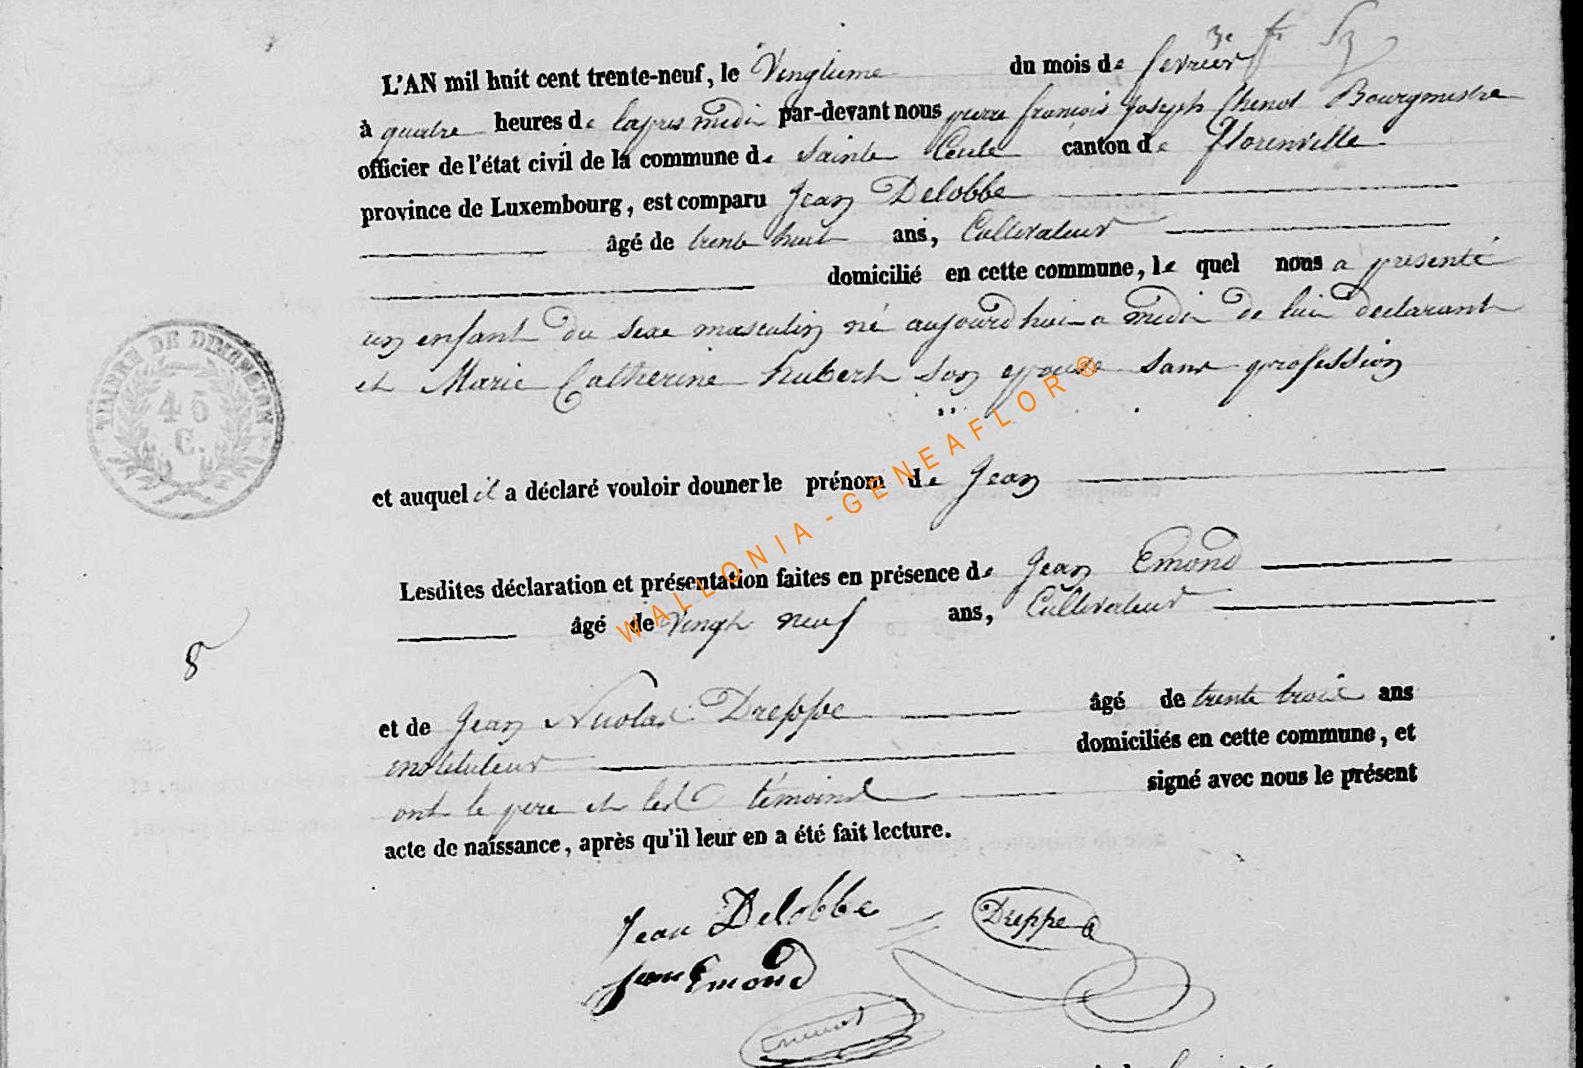 L'AN mil huit cent trente-neuf, le Vingtieme du mois de fevrier
à quatre heures de lapres midi par-devant nous pierre francois Joseph Chenot Bourgmestre
officier de l'état civil de la commune de Sainte Cecile canton de florenville
province de Luxembourg, est comparu Jean Delobbe
âgé de trente huit ans, Cultivateur
domicilié en cette commune, le quel nous a présenté
un enfant du sexe masculin né aujourdhui a midi de lui declarant
et Marie Catherine hubert son epouse sans profession
et auquel il a déclaré vouloir donner le prénom de Jean
Lesdites déclaration et présentation faites en présence de Jean Emond
âgé de Vingt neuf ans, Cultivateur
et de Jean Nicolas Dreppe âgé de trente trois ans
instituteur domiciliés en cette commune, et
ont le pere et les témoins signé avec nous le présent
acte de naissance, après qu'il leur en a été fait lecture.
Jean Delobbe Dreppe
Jean Emond
8
TIMBRE DE DIMENSION
45
C.
WALLONIA - GENEAFLOR ®